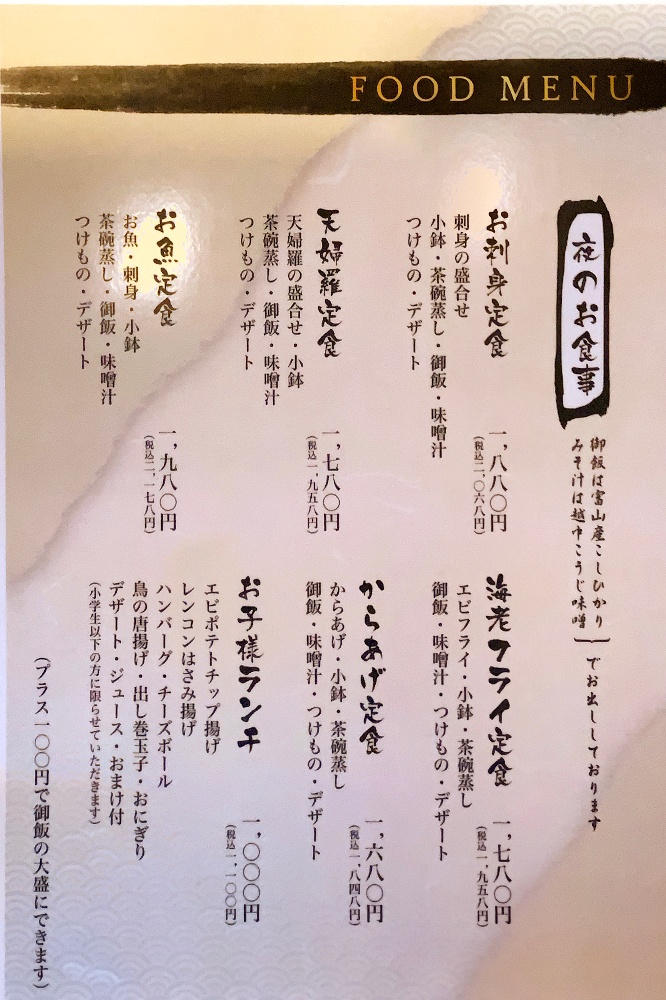 FOOD MENU
夜のお食事
御飯は富山産こしひかり
みそ汁は越中こうじ味噌
でお出ししております
お刺身定食
一,八八〇円
(税込二,〇六八円)
刺身の盛合せ
小鉢・茶碗蒸し・御飯・味噌汁
つけもの・デザート
天婦羅定食
一,七八〇円
(税込一,九五八円)
天婦羅の盛合せ・小鉢
茶碗蒸し・御飯・味噌汁
つけもの・デザート
お魚定食
一,九八〇円
(税込二,一七八円)
お魚・刺身・小鉢
茶碗蒸し・御飯・味噌汁
つけもの・デザート
海老フライ定食
一,七八〇円
(税込一,九五八円)
エビフライ・小鉢・茶碗蒸し
御飯・味噌汁・つけもの・デザート
からあげ定食
一,六八〇円
(税込一,八四八円)
からあげ・小鉢・茶碗蒸し
御飯・味噌汁・つけもの・デザート
お子様ランチ
一,〇〇〇円
(税込一,一〇〇円)
エビポテトチップ揚げ
レンコンはさみ揚げ
ハンバーグ・チーズボール
鳥の唐揚げ・出し巻玉子・おにぎり
デザート・ジュース・おまけ付
(小学生以下の方に限らせていただきます)
(プラス一〇〇円で御飯の大盛にできます)